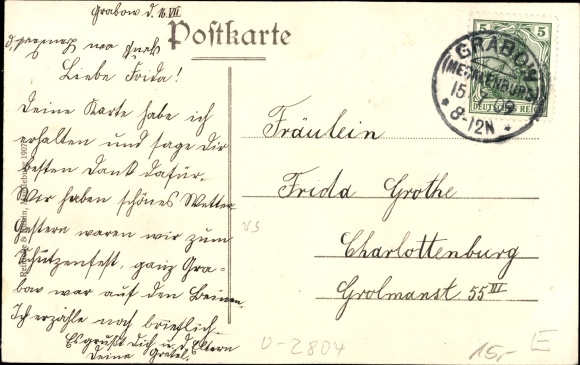 Grabow d. 16. VII
Postkarte
Liebe Frida!
Deine Karte habe ich
erhalten und sage dir
besten Dank dafür.
Wir haben schönes Wetter
Gestern waren wir zum
Schützenfest, ganz Gra-
bow war auf den Beinen.
Ich erzähle noch brieflich
Es grüßt Dich u. d. Eltern
Deine Gretel.
Fräulein
Frida Grothe
Charlottenburg
Grolmanst 55 III
5 5
DEUTSCHES REICH
GRABOW
(MECKLENBURG)
15
8-12N
Magdeburg 1907
V3
U-2804
15,-
E